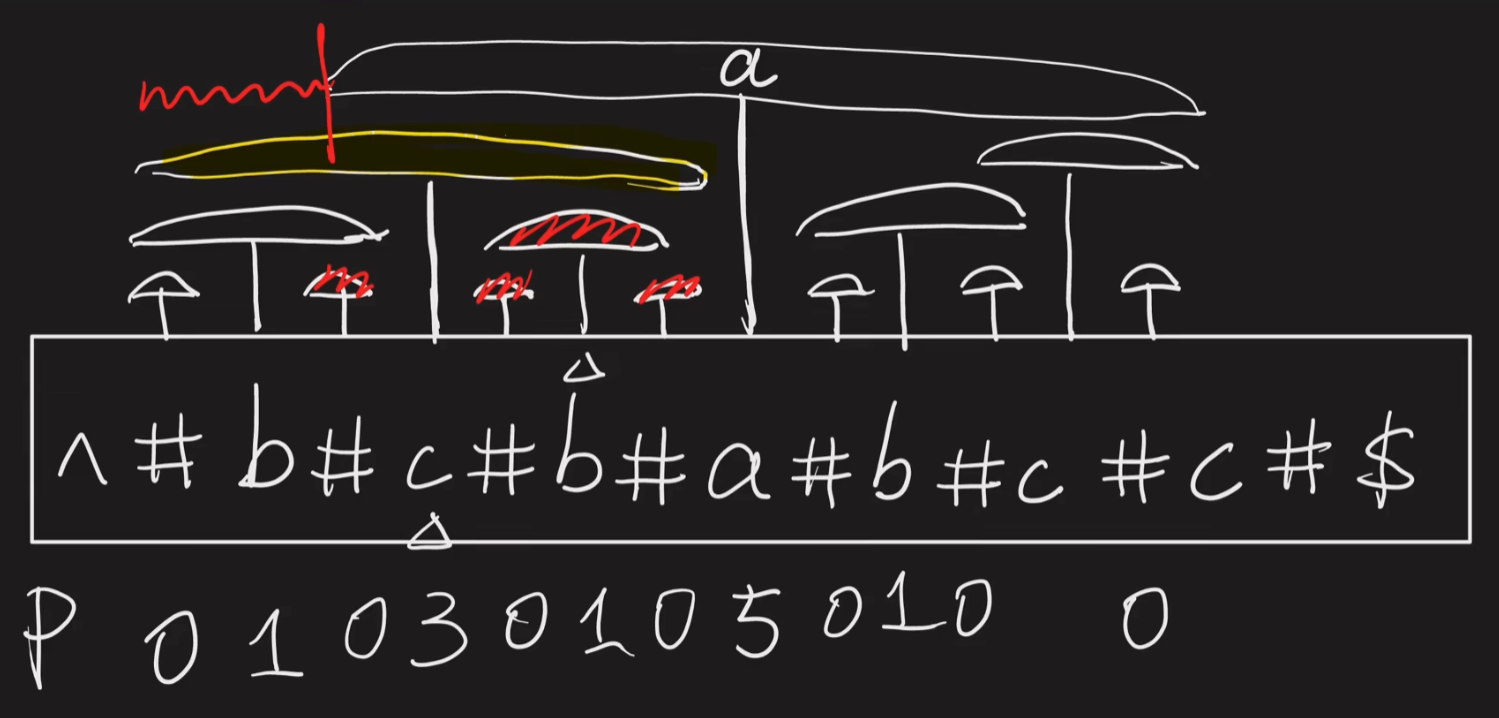 a
^ # b # c # b # a # b # c # c # $
P 0 1 0 3 0 1 0 5 0 1 0 0